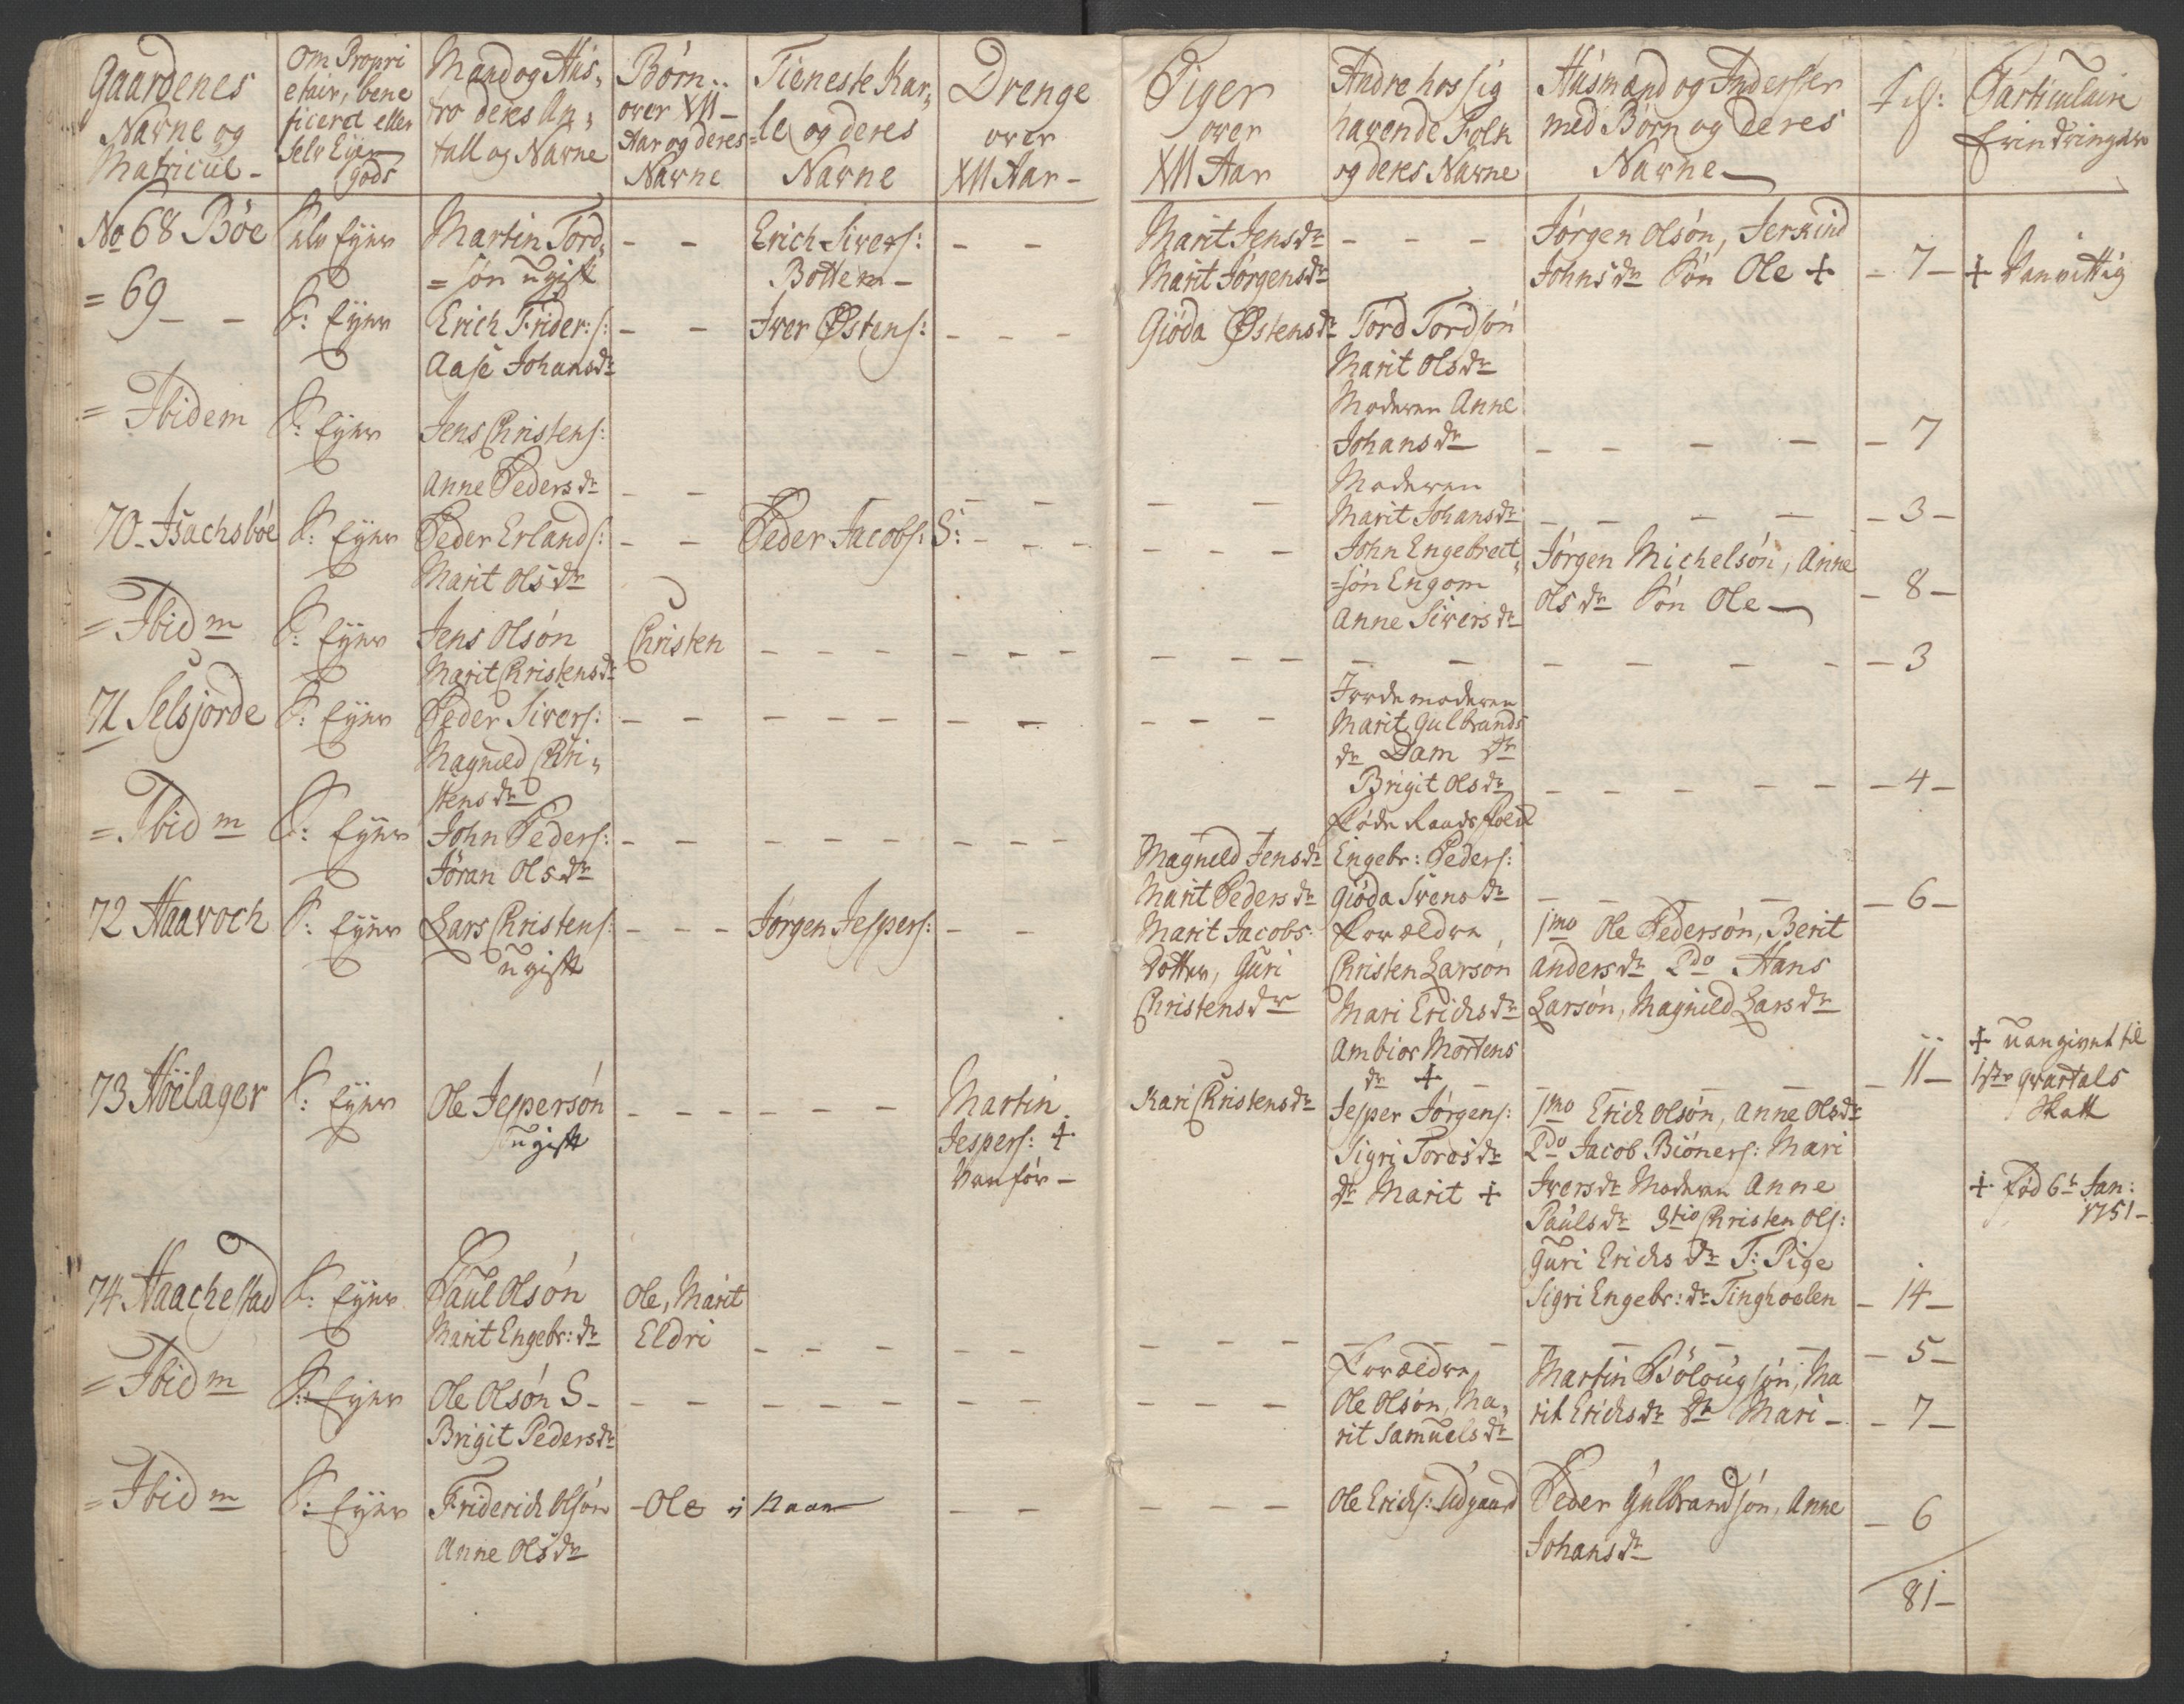 Gaardenes
Navne og
Matricul-
Om Propri
etair, bene
ficeret eller
Selv Eyer
gods
Mand og Hus,
tro deres An,
tall og Navne
Børn..
over XII-
Aar og deres
Navne
Tieneste Kar,
=le og deres
Navne
Drenge
over
XII Aar-
Piger
over
XII Aar
Andre hos sig
havende Folk
og deres Navne
Husmænd og Inderster
med Børn og deres
Navne
Particulaire
Erindringer
No 68 Bøe
Selv Eyer
Martin Tord,
=søn ugift
- -
Erich Sivers:
Bottem-
- -
Marit Jensdr
Marit Jørgensdr
- - -
Jørgen Olsøn, Jerkind
Johnsdr Søn Ole +
- 7 -
+ Vanvittig
= 69 - -
S: Eyer
Erich Frider:s:
Aase Johansdr
- -
Iver Østens:
- - -
Giøda Østensdr
Tord Tordsøn
Marit Olsdr
Moderen Anne
Johansdr
- - - -
- 7
= Ibidem
S: Eyer
Jens Christens:
Anne Pedersdr
- -
- -
- -
Moderen
Marit Johansdr
- - - -
- 3 -
70 - Isachsbøe
S: Eyer
Peder Erlands:
Marit Olsdr
- -
Peder Jacobs: S:
- - -
- - -
John Engebret,
=søn Engom
Anne Siversdr
Jørgen Michelsøn, Anne
Olsdr Søn Ole
- 8 -
= Ibidm
S: Eyer
Jens Olsøn
Marit Christensdr
Christen
- - - -
- - -
- - -
- -
- - - -
- 3
71 Selsjorde
S: Eyer
Peder Sivers:
Magnild Chri,
stensdr
- -
- - - -
- -
- - -
Marit Gulbrands
dr Dam dr
Brigit Olsdr
- - - - -
- 4 -
= Ibidm
S: Eyer
John Peders:
Jøran Olsdr
- -
- - -
- - -
Magnild Jensdr
Marit Pedersdr
Føde Raads folk
Engebr: Peders:
Giøda Svensdr
- - - -
- 6 -
72 Haavoch
S: Eyer
Lars Christens:
ugift
- - -
Jørgen Jespers:
- -
Marit Jacobs:
Dotter, Guri
Christensdr
Forældre
Christen Larsøn
Mari Erichsdr
Ambior Mortens
dr +
1mo Ole Pedersøn, Berit
Andersdr 2do Hans
Larsøn, Magnild Larsdr
- 11 -
+ uangivet til
1ste qvartals
Skatt
73 Høelager
S: Eyer
Ole Jespersøn
ugift
- - -
- - -
Martin
Jespers: +
Vanfør -
Kari Christensdr
Jesper Jørgens:
Sigri Tordsdr
dr Marit +
1mo Erich Olsøn, Anne Olsdr
2do Jacob Biøners: Mari
Iversdr Moderen Anne
Paulsdr 3tio Christen Ols:
Guri Erichsdr T: Pige
Sigri Engebr: dr Tinghoelen
- 14 -
+ Fød 6te Jan:
1751 -
74 Haachestad
S: Eyer
Paul Olsøn
Marit Engebr: dr
Ole, Marit
Eldri
- - -
- -
- - -
- - -
- - - -
- 5 -
= Ibidm
S: Eyer
Ole Olsøn S -
Brigit Pedersdr
- -
- - - -
- -
- - -
Forældre
Ole Olsøn, Ma,
rit Samuelsdr
Martin Bølougsøn, Ma
rit Erichsdr dr Mari -
- 7 -
= Ibidm
S: Eyer
Friderich Olsøn
Anne Olsdr
- Ole
- -
- - -
Ole Erichs: Udgaard
Peder Gulbrandsøn, Anne
Johansdr
- 6
81 -